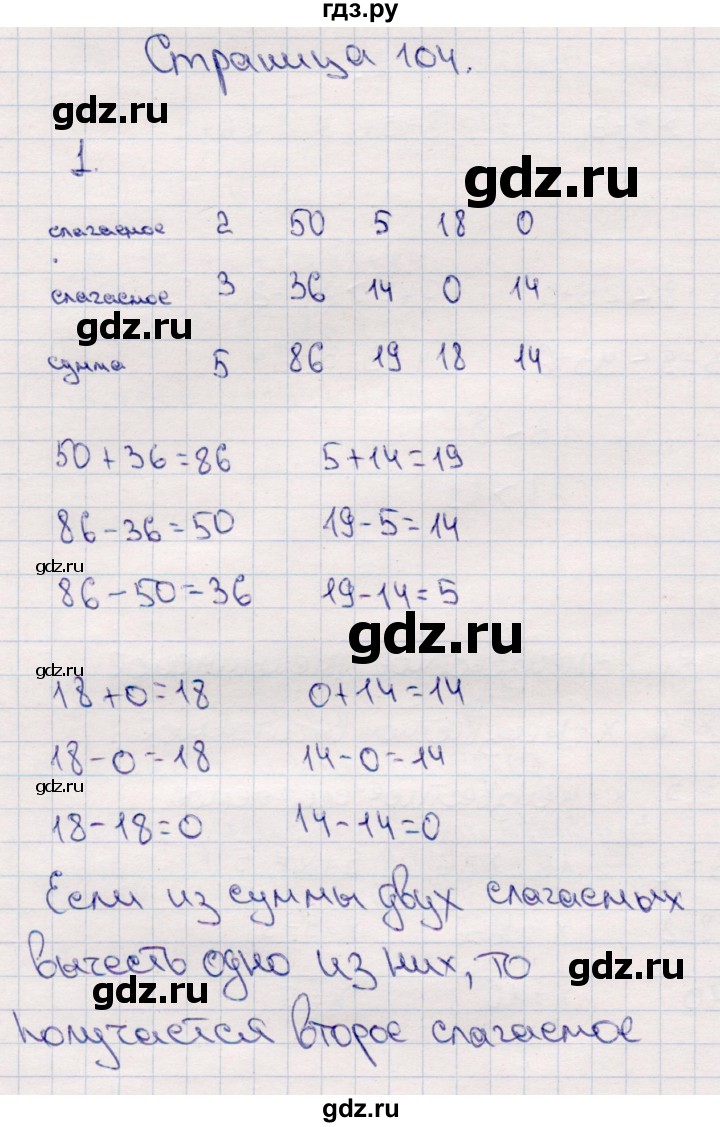 гдз.ру
Страница 104.
gdz.ru
1.
gdz.ru
слагаемое 2 50 5 18 0
слагаемое 3 36 14 0 14
gdz.ru
сумма 5 86 19 18 14
50+36=86 5+14=19
86-36=50 19-5=14
gdz.ru
86-50=36 19-14=5
gdz.ru
gdz.ru
18+0=18 0+14=14
18-0=18 14-0=14
gdz.ru
18-18=0 14-14=0
Если из суммы двух слагаемых
вычесть одно из них, то
gdz.ru
gdz.ru
получается второе слагаемое
gdz.ru